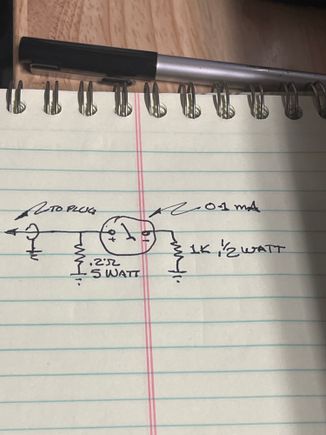 TO PLUG
0-1 mA
+ -
1K 1/2 WATT
.2Ω
5 WATT